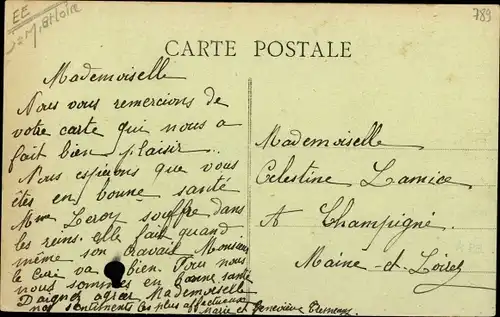 EE
M. et Loire
789
CARTE POSTALE
Mademoiselle
Nous vous remercions de
votre carte qui nous a
fait bien plaisir..
Nous espérons que vous
êtes en bonne santé
Mme Leroy souffre dans
les reins. elle fait quand
même son travail Monsieur
le curé va bien. Tous nous
nous sommes en bonne santé
Daignez agréer Mademoiselle
nos sentiments les plus affectueux
Marie et Geneviève
Mademoiselle
Celestine Lamice
A Champigné
Maine-et-Loire